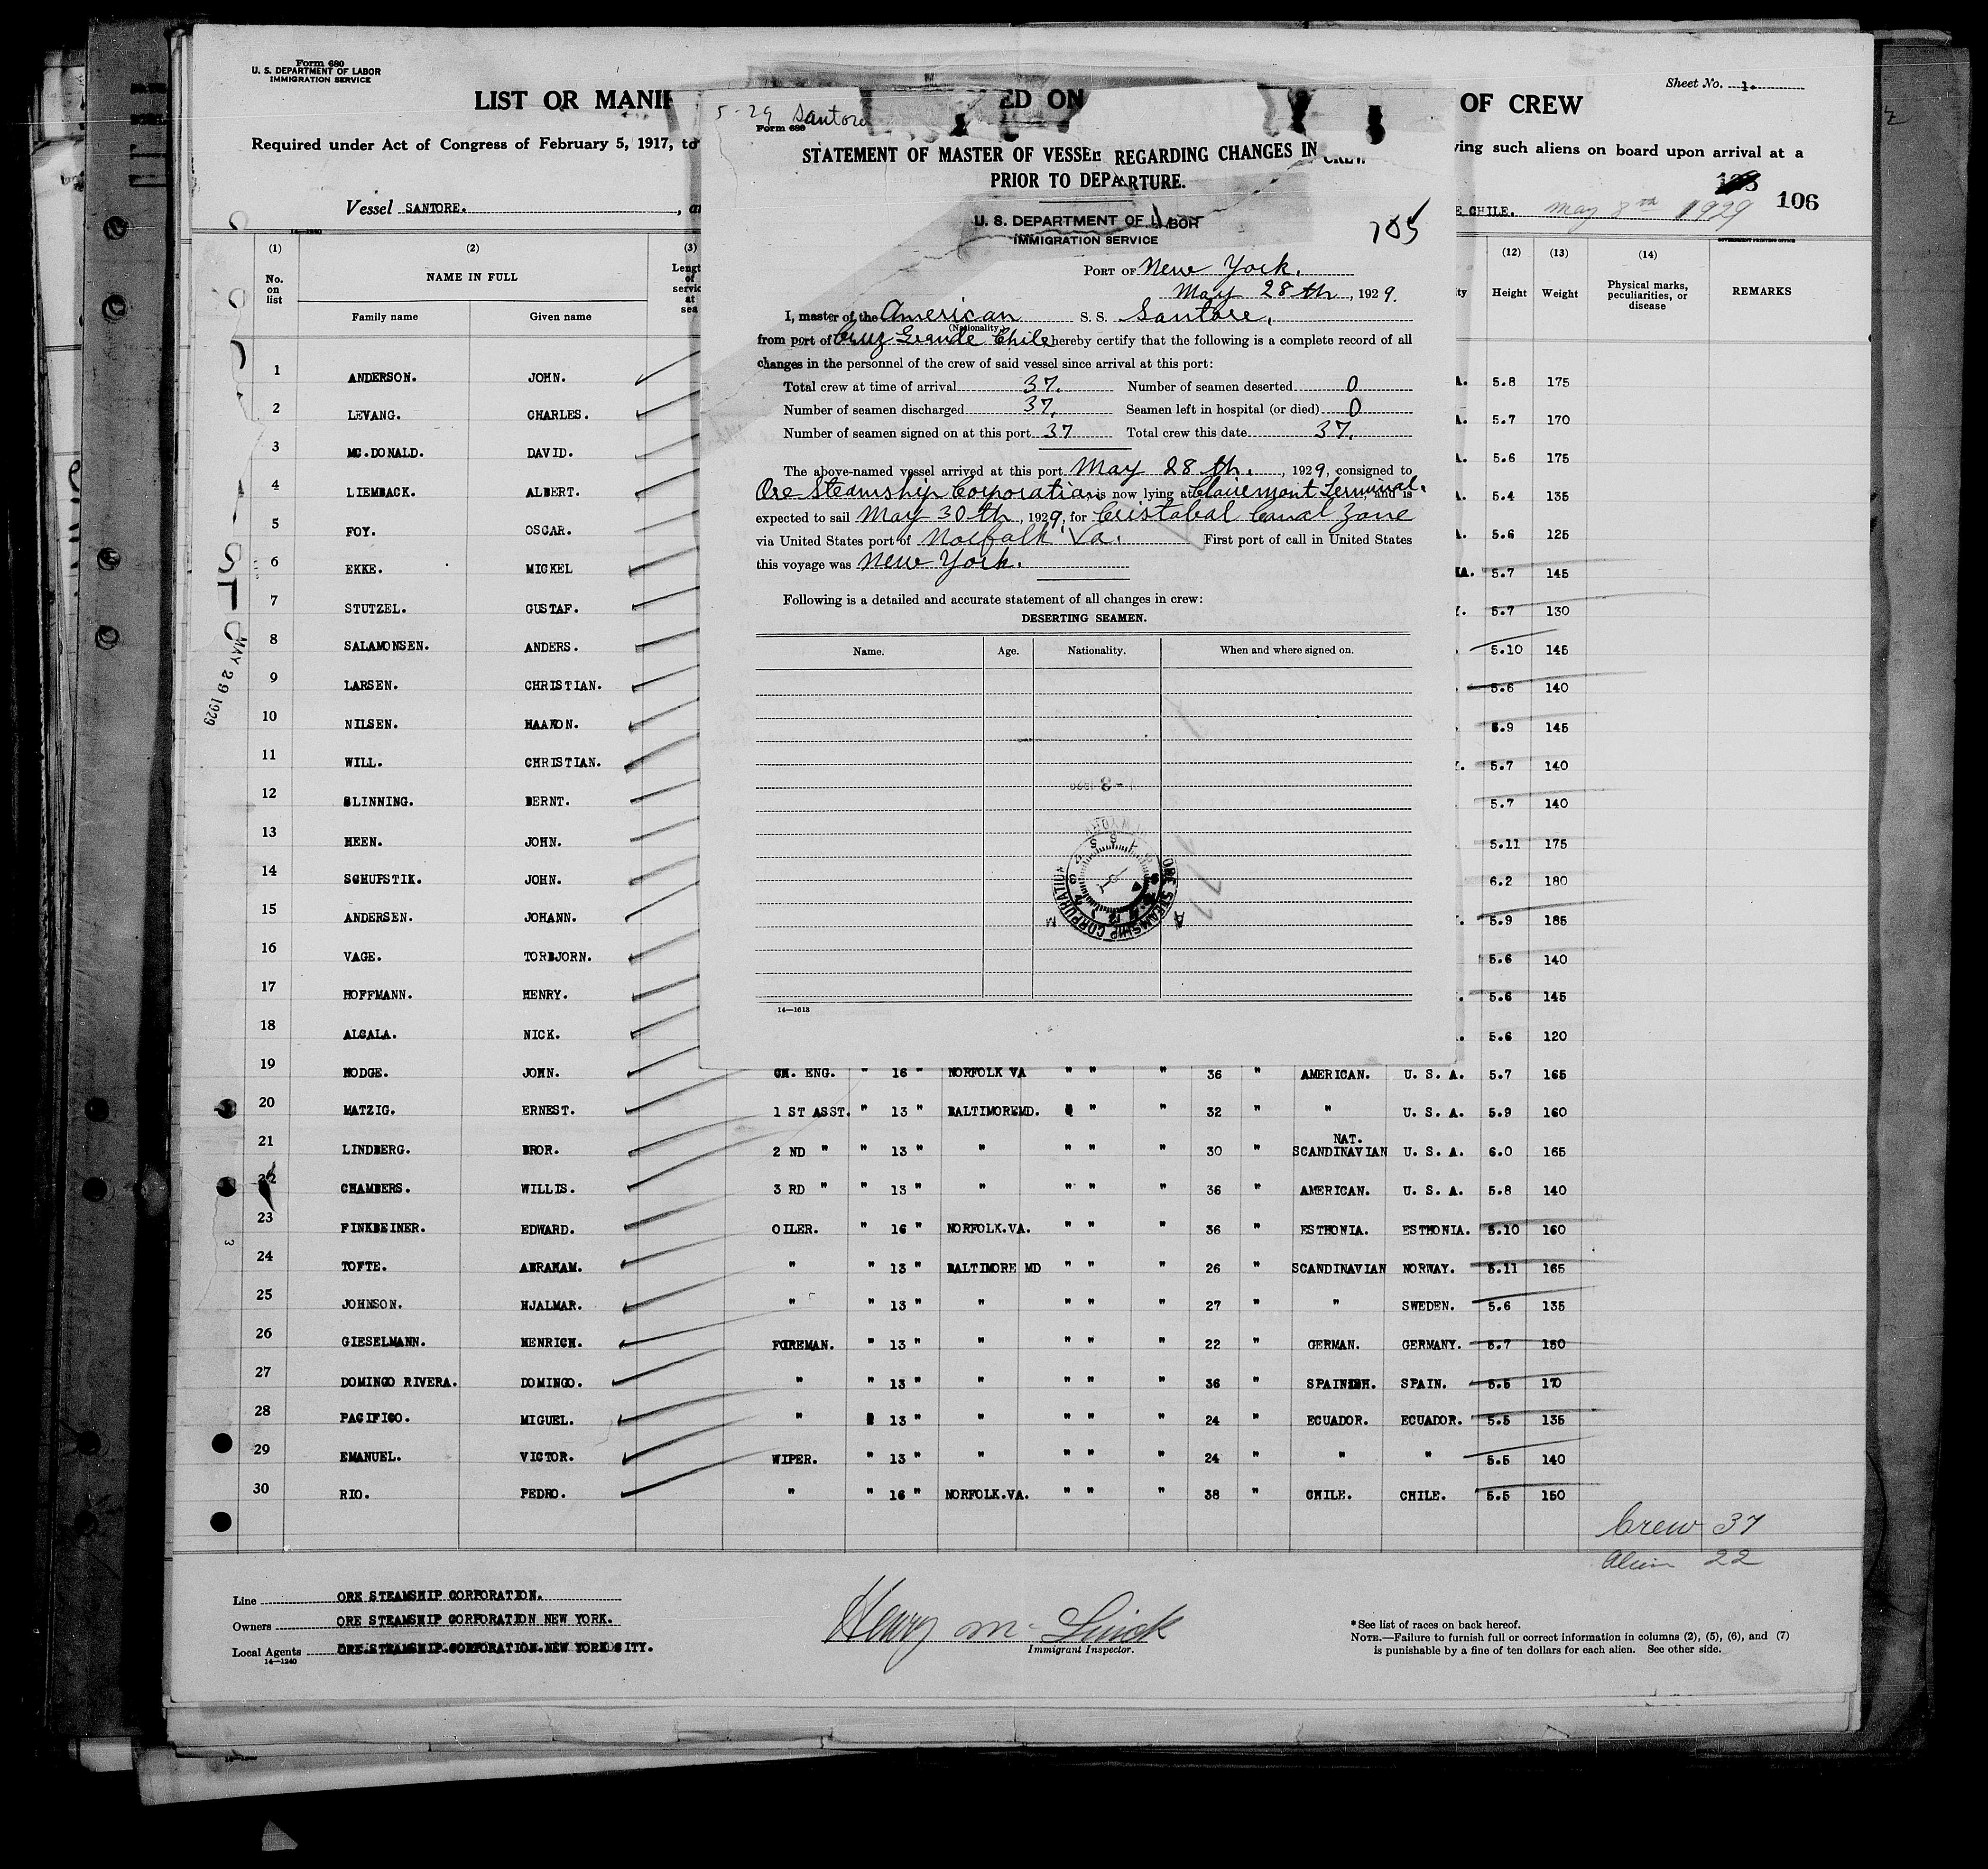 Form 680
U. S. DEPARTMENT OF LABOR
IMMIGRATION SERVICE
Sheet No. 1.
LIST OR MANIF
ED ON
OF CREW
Required under Act of Congress of February 5, 1917, to
ving such aliens on board upon arrival at a
Vessel SANTORE.
E CHILE. May 8th 1929 106
5-29 Santore
Form 689
STATEMENT OF MASTER OF VESSEL REGARDING CHANGES IN CREW
PRIOR TO DEPARTURE.
U. S. DEPARTMENT OF LABOR
IMMIGRATION SERVICE
105
PORT OF New York.
May 28th, 1929.
I, master of the American S. S. Santore,
(Nationality)
from port of Cruz Grande Chile hereby certify that the following is a complete record of all
changes in the personnel of the crew of said vessel since arrival at this port:
Total crew at time of arrival 37. Number of seamen deserted 0
Number of seamen discharged 37. Seamen left in hospital (or died) 0
Number of seamen signed on at this port 37 Total crew this date 37.
The above-named vessel arrived at this port May 28th., 1929, consigned to
Ore Steamship Corporation is now lying at Clairemont Terminal, and is
expected to sail May 30th, 1929, for Cristobal Canal Zone
via United States port of Norfolk Va. First port of call in United States
this voyage was New York.
Following is a detailed and accurate statement of all changes in crew:
DESERTING SEAMEN.
Name. Age. Nationality. When and where signed on.
ORE STEAMSHIP CORPORATION
14—1613
14—1240
(1) (2) (3) (12) (13) (14)
GOVERNMENT PRINTING OFFICE
No. on list NAME IN FULL Height Weight Physical marks, peculiarities, or disease REMARKS
Family name Given name
1 ANDERSON. JOHN. A. 5.8 175
2 LEVANG. CHARLES. A. 5.7 170
3 MC.DONALD. DAVID. A. 5.6 175
4 LIEMBACK. ALBERT. A. 5.4 135
5 FOY. OSCAR. A. 5.6 125
6 EKKE. MICKEL KA. 5.7 145
7 STUTZEL. GUSTAF. Y. 5.7 130
8 SALAMONSEN. ANDERS. 5.10 145
9 LARSEN. CHRISTIAN. 5.6 140
10 NILSEN. HAAKON. 5.9 145
11 WILL. CHRISTIAN. Y. 5.7 140
12 SLINNING. BERNT. 5.7 140
13 HEEN. JOHN. 5.11 175
14 SCHUPSTIK. JOHN. 6.2 180
15 ANDERSEN. JOHANN. 5.9 185
16 VAGE. TORBJORN. 5.6 140
17 HOFFMANN. HENRY. 5.6 145
18 ALCALA. NICK. 5.6 120
19 HODGE. JOHN. CH. ENG. " 16 " NORFOLK VA " " " 36 " AMERICAN. U. S. A. 5.7 165
20 MATZIG. ERNEST. 1 ST ASST. " 13 " BALTIMORE MD. " " 32 " " U. S. A. 5.9 160
21 LINDBERG. BROR. 2 ND " " 13 " " " " " 30 " NAT. SCANDINAVIAN U. S. A. 6.0 165
22 CHAMBERS. WILLIS. 3 RD " " 13 " " " " " 36 " AMERICAN. U. S. A. 5.8 140
23 FINKBEINER. EDWARD. OILER. " 16 " NORFOLK.VA. " " " 36 " ESTHONIA. ESTHONIA. 5.10 160
24 TOFTE. ABRAHAM. " " 13 " BALTIMORE MD " " " 26 " SCANDINAVIAN NORWAY. 5.11 165
25 JOHNSON. HJALMAR. " " 13 " " " " " 27 " " SWEDEN. 5.6 135
26 GIESELMANN. HENRICH. FOREMAN. " 13 " " " " " 22 " GERMAN. GERMANY. 5.7 150
27 DOMINGO RIVERA. DOMINGO. " " 13 " " " " " 36 " SPAINISH. SPAIN. 5.5 170
28 PACIFICO. MIGUEL. " 13 " " " " " 24 " ECUADOR. ECUADOR. 5.5 135
29 EMANUEL. VICTOR. WIPER. " 13 " " " " " 24 " " " 5.5 140
30 RIO. PEDRO. " " 16 " NORFOLK.VA. " " " 38 " CHILE. CHILE. 5.5 150
MAY 29 1929
Crew 37
Alien 22
Line ORE STEAMSHIP CORPORATION.
Owners ORE STEAMSHIP CORPORATION NEW YORK.
Local Agents ORE STEAMSHIP CORPORATION.NEW YORK CITY.
14—1240
Immigrant Inspector.
*See list of races on back hereof.
NOTE.—Failure to furnish full or correct information in columns (2), (5), (6), and (7)
is punishable by a fine of ten dollars for each alien. See other side.